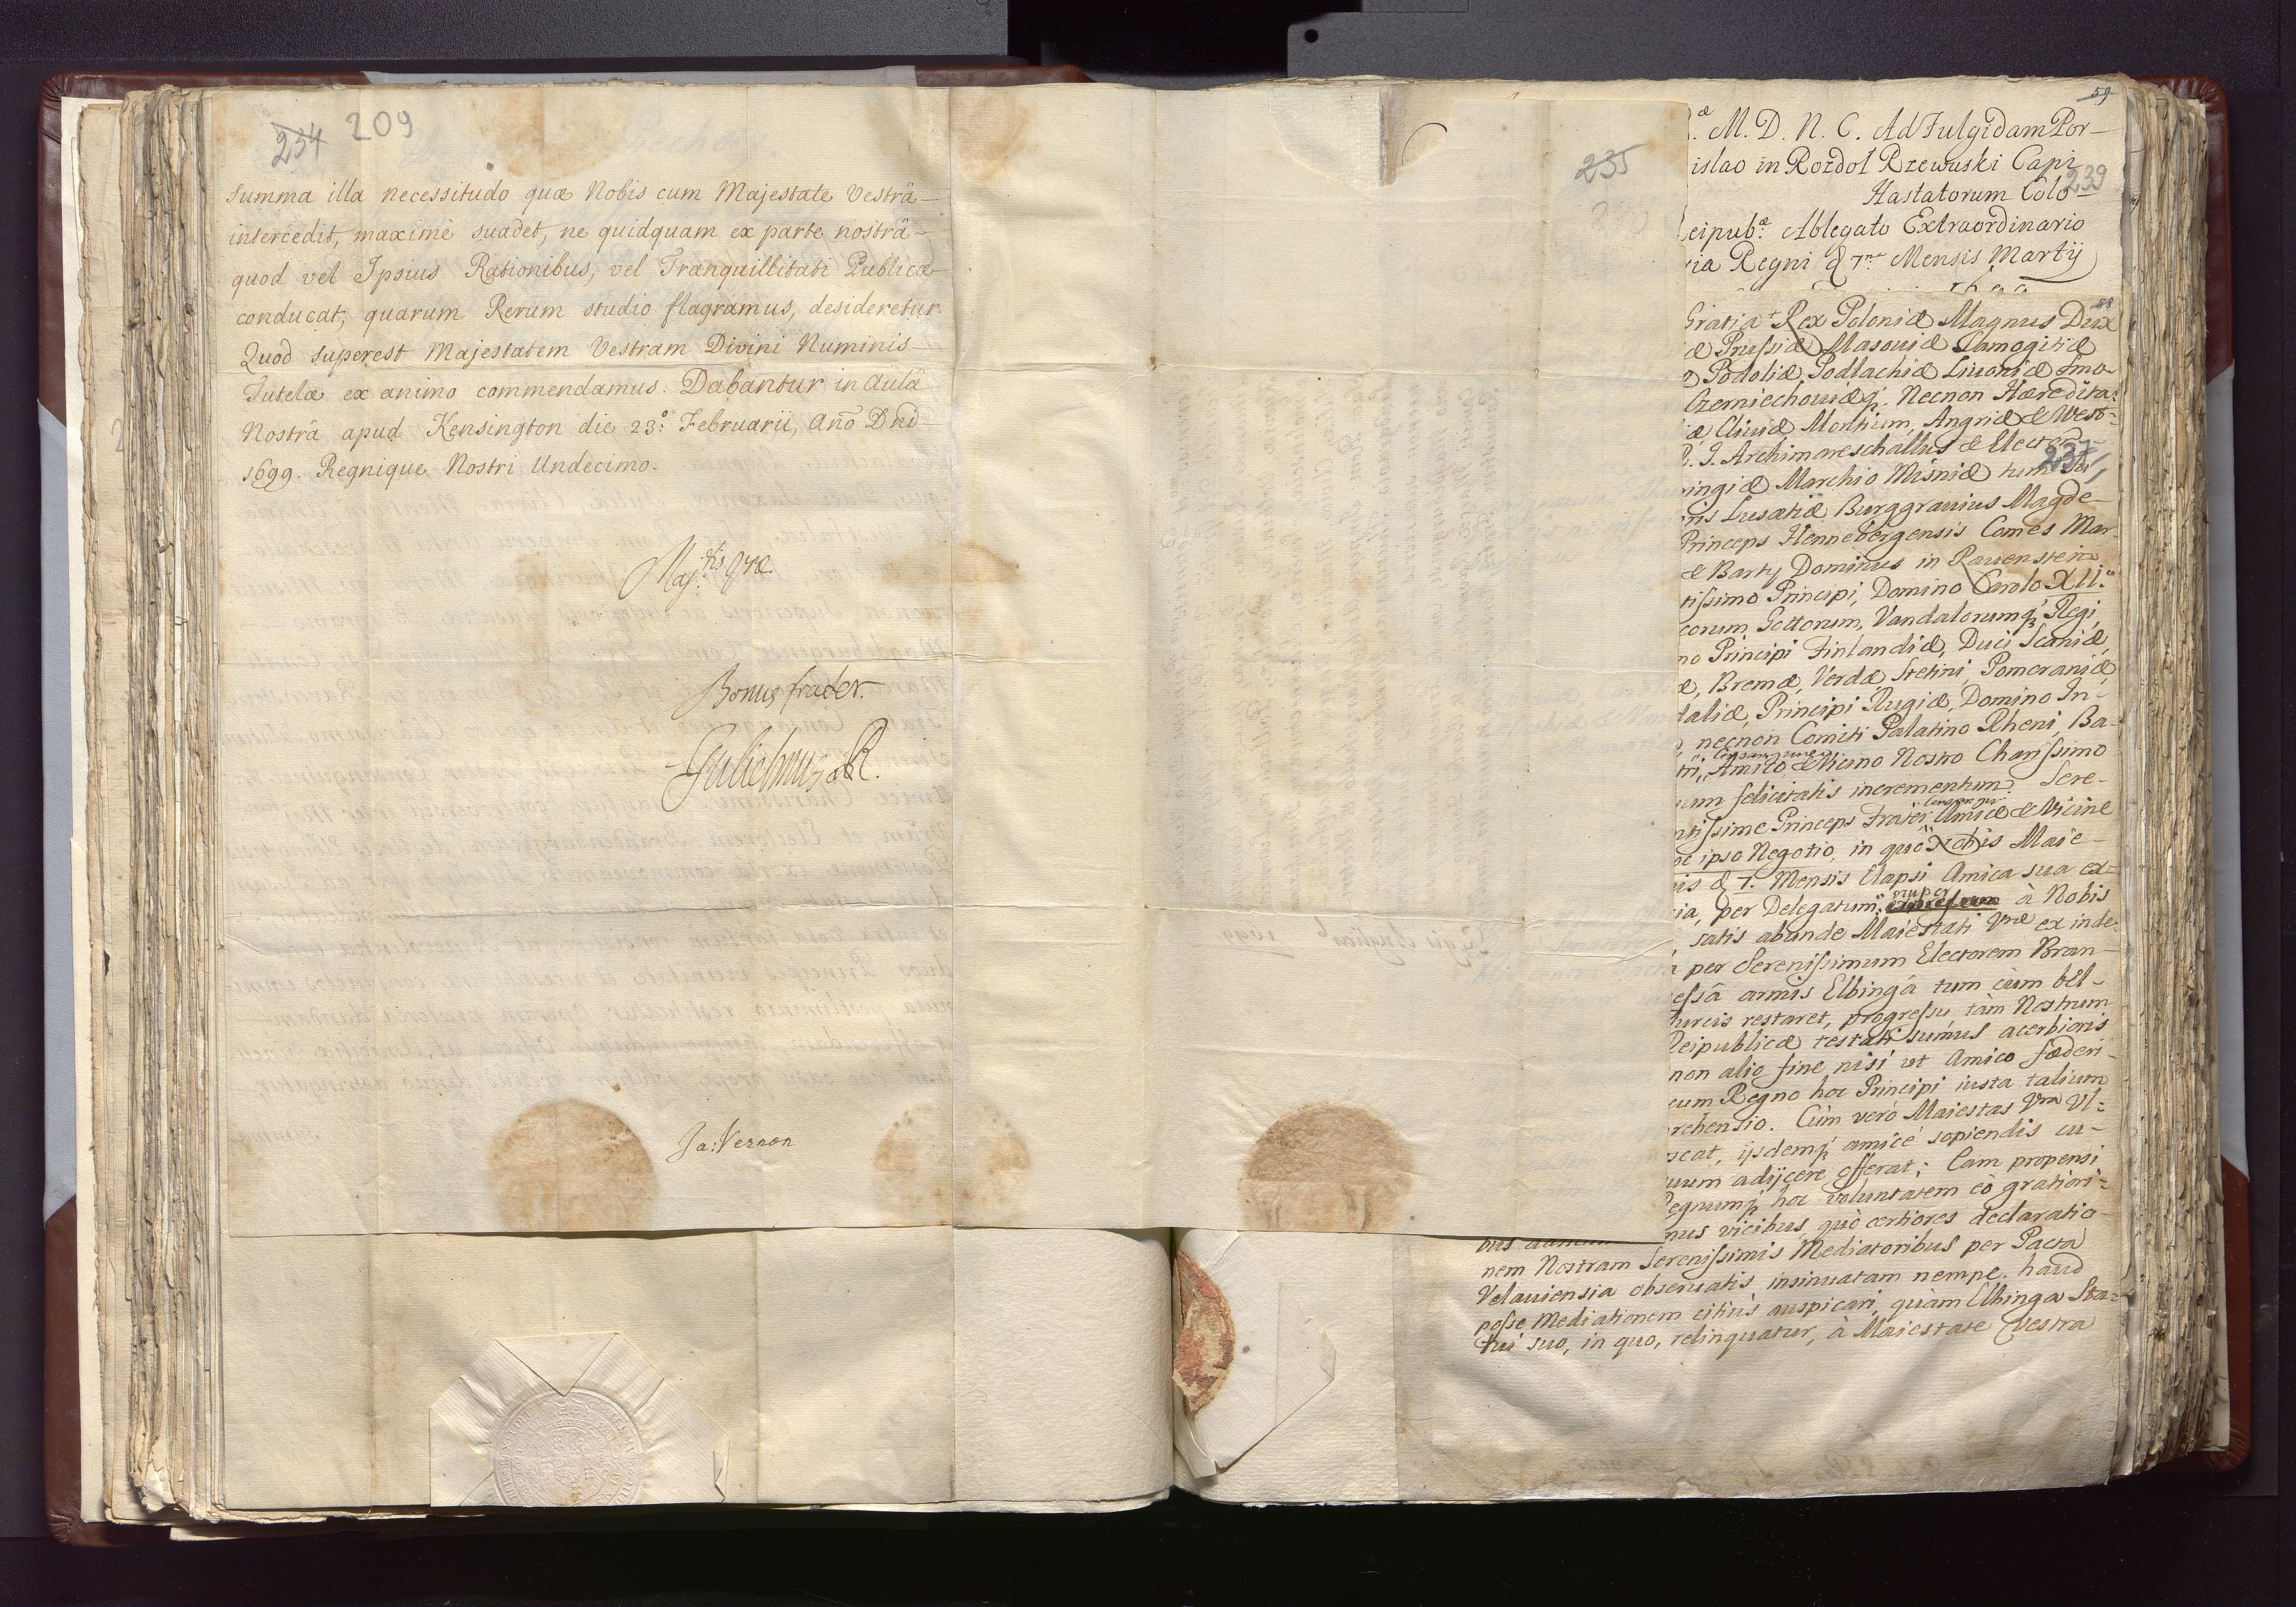 234 209
Summa illa necessitudo quæ Nobis cum Majestate Vestrâ
intercedit, maximè suadet, ne quidquam ex parte nostrâ
quod vel Ipsius Rationibus, vel Tranquillitati Publicæ
conducat, quarum Rerum studio flagramus, desideretur.
Quod superest Majestatem Vestram Divini Numinis
Tutelæ ex animo commendamus. Dabantur in Aulâ
Nostrâ apud Kensington die 23.º Februarii, Año Dni
1699. Regnique Nostri Undecimo.
Maj:tis Vræ.
Bonus frater.
Gulielmus R.
Ja: Vernon
235
59
M. D. N. C. Ad Fulgidam Por-
islao in Rozdoł Rzewuski Capi
239
Hastatorum Colo-
eipubæ. Ablegato Extraordinario
ria Regni d 7ma Mensis Martij
58
Gratia Rex Poloniæ Magnus Dux
æ Prussiæ Masouiæ Samogitiæ
Podoliæ Podlachiæ Liuoniæ Smo-
Czerniechouiæq. Necnon Hæredita:
æ Cliuiæ Montium, Angriæ & West-
I. Archimareschallus & Elector
237
ingiæ Marchio Misniæ tum Su
ris Lusatiæ Burggrauius Magde-
Princeps Hennebergensis Comes Mar-
& Barby Dominus in Rauenstein
tissimo Principi, Domino Carolo XII.º
corum Gottorum, Vandalorumq Regi,
no Principi Finlandiæ, Duci Scaniæ,
æ, Bremæ, Verdæ Stetini, Pomeraniæ,
daliæ, Principi Rugiæ, Domino In-
necnon Comiti Palatino Rheni, Ba-
Consanguineo
tri, Amico & Vicino Nostro Charissimo
um felicitatis incrementum. Sere-
ntissime Princeps Frater Amice & Vicine
ipso Negotio, in quo Nobis Maie-
is d 7. Mensis Elapsi Amica sua ex-
nuper
ia, per Delegatum à Nobis
satis abunde Maiestati Vræ ex inde
per Serenissimum Electorem Bran-
essâ armis Elbingâ tum cùm bel-
urcis restaret, progressu, tàm Nostrum
Reipublicæ testati sumus acerbioris
non alio fine nisi vt Amico fœderi-
cum Regno hoc Principi iusta talium
rehensio. Cùm verò Maiestas Vra Vl-
scat, ijsdemq amicè sopiendis cu-
uum adijcere offerat; Eam propensi
Regnumq hoc voluntatem eò gratiori-
nus vicibus, quò certiores declaratio-
nem Nostram Serenissimis Mediatoribus per Pacta
Velauiensia obseruatis insinuatam nempe, haud
posse Mediationem citiùs auspicari, quàm Elbinga Sta-
tui suo, in quo, relinquatur, à Maiestate Vestra